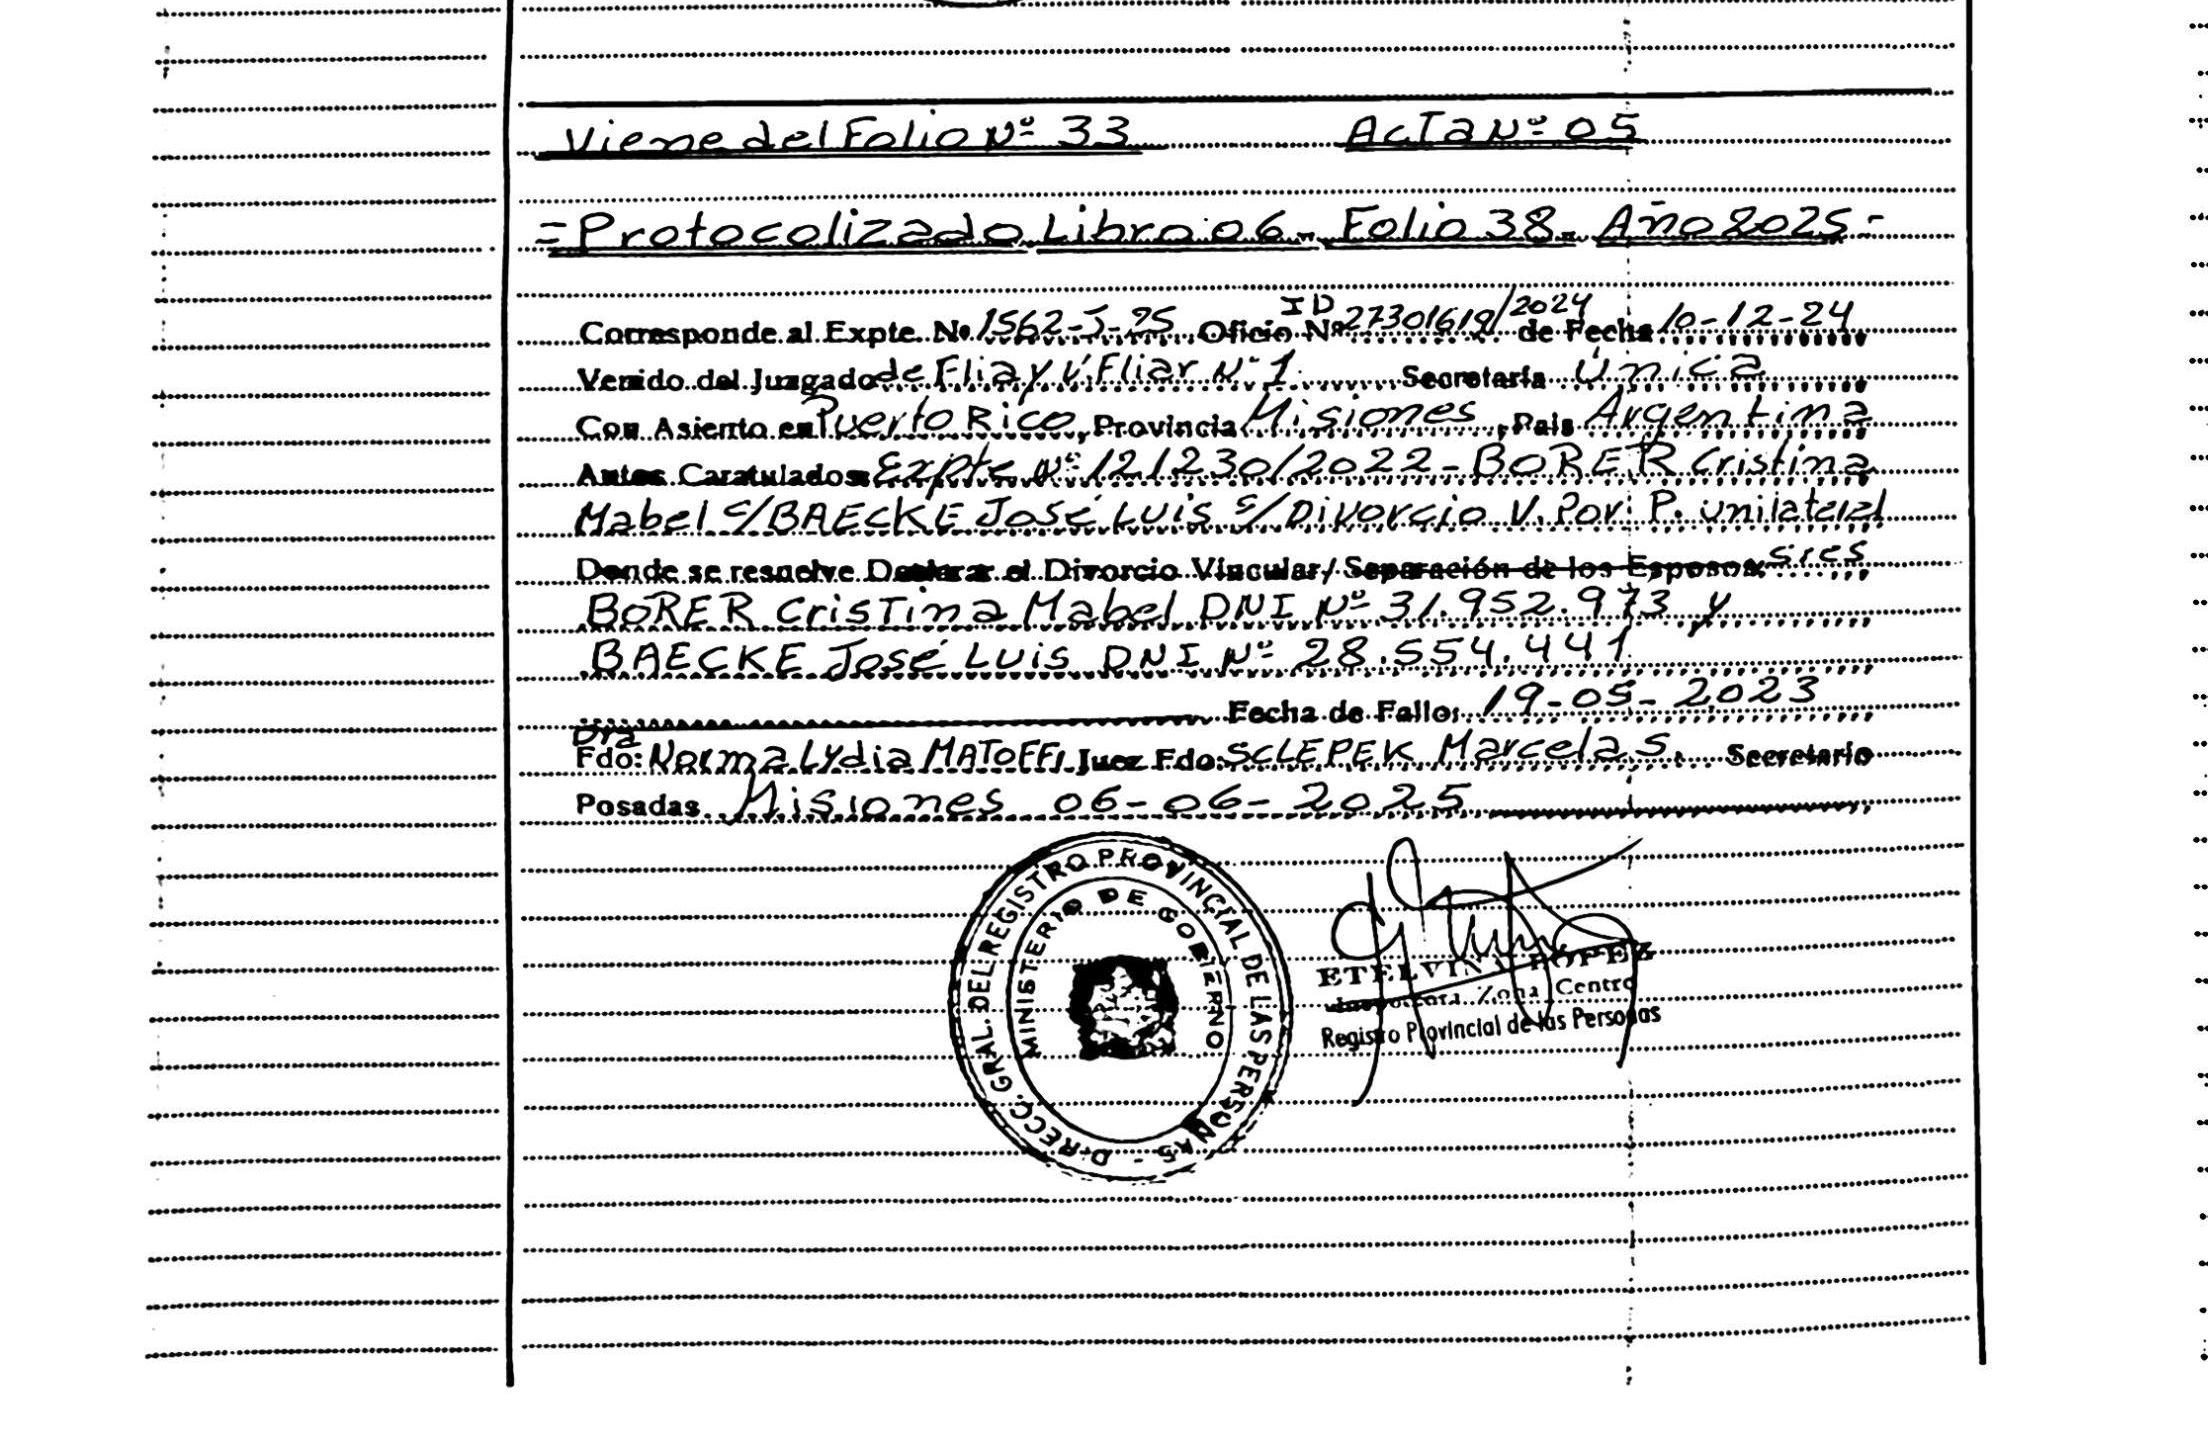 Viene del Folio Nº 33 Acta Nº 05
= Protocolizado Libro 06 - Folio 38 - Año 2025 =
Corresponde al Expte. Nº 1562-S-25 Oficio ID Nº 27301619/2024 de Fecha 10-12-24
Venido del Juzgado de Flia y V. Fliar Nº 1 Secretaría Única
Con Asiento en Puerto Rico, Provincia Misiones, País Argentina
Autos Caratulados Expte Nº 121230/2022 - BORER Cristina
Mabel c/ BAECKE José Luis s/ Divorcio V. Por P. unilateral
Donde se resuelve Declarar el Divorcio Vincular/ Separación de los Esposos: sres
BORER Cristina Mabel DNI Nº 31.952.973 y
BAECKE José Luis DNI Nº 28.554.441
Fecha de Fallo: 19-05-2023
Dra
Fdo: Norma Lydia MATOFF, Juez Fdo: SCLEPEK Marcela S. Secretario
Posadas Misiones 06-06-2025
DIRECC. GRAL. DEL REGISTRO PROVINCIAL DE LAS PERSONAS -
MINISTERIO DE GOBIERNO
ETELVINA LOPEZ
Inspectora Zona Centro
Registro Provincial de las Personas